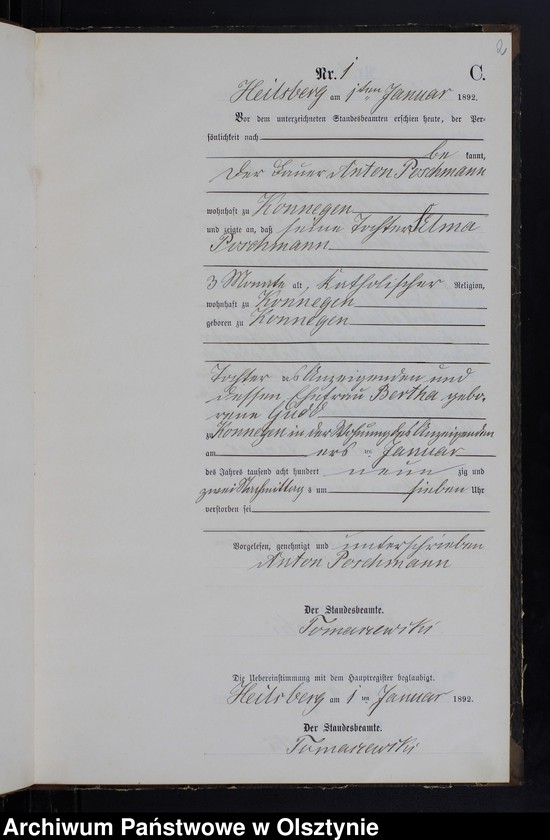 2
Nr. 1 C.
Heilsberg am 1ten Januar 1892.
Vor dem unterzeichneten Standesbeamten erschien heute, der Per-
sönlichkeit nach
be kannt,
der Bauer Anton Poschmann
wohnhaft zu Konnegen
und zeigte an, daß seine Tochter
Poschmann
3 Monate alt, katholischer Religion,
wohnhaft zu Konnegen
geboren zu Konnegen
Tochter des Anzeigenden und
dessen Ehefrau Bertha gebo-
rene
zu Konnegen in der Wohnung des Anzeigenden
am ersten Januar
des Jahres tausend acht hundert neun zig und
zwei Nachmittags um sieben Uhr
verstorben sei
Vorgelesen, genehmigt und unterschrieben
Anton Poschmann
Der Standesbeamte.
Tomaszewski
Die Uebereinstimmung mit dem Hauptregister beglaubigt.
Heilsberg am 1ten Januar 1892.
Der Standesbeamte.
Tomaszewski
Archiwum Państwowe w Olsztynie